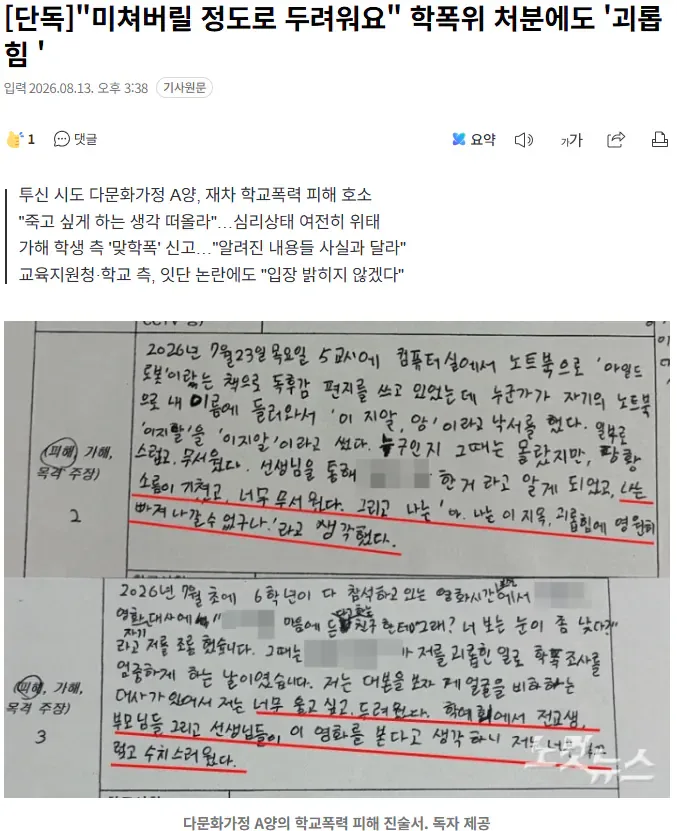 [단독]"미쳐버릴 정도로 두려워요" 학폭위 처분에도 '괴롭
힘 '
입력 2026.08.13. 오후 3:38 기사원문
1 댓글 요약 가가
투신 시도 다문화가정 A양, 재차 학교폭력 피해 호소
"죽고 싶게 하는 생각 떠올라"…심리상태 여전히 위태
가해 학생 측 '맞학폭' 신고…"알려진 내용들 사실과 달라"
교육지원청·학교 측, 잇단 논란에도 "입장 밝히지 않겠다"
2026년 7월23일 목요일 5교시에 컴퓨터실에서 노트북으로 '와일드
로봇'이라는 책으로 독후감 편지를 쓰고 있었는데 누군가가 자기의 노트북
으로 내 이름에 들러와서 '이 지알, 앙'이라고 낙서를 했다. 일부로
'이지랄'을 '이지알'이라고 썼다. 누구인지 그때는 몰랐지만, 당황
스럽고, 무서웠다. 선생님을 통해 한거 라고 알게 되었고, 나는
소름이 끼쳤고, 너무 무서웠다. 그리고 나는 '아. 나는 이 지옥, 괴롭힘에 영원히
빠져 나갈수 없구나.'라고 생각했다.
피해, 가해,
목격 주장)
2
2026년 7월 초에 6학년이 다 참석하고 있는 영화시간에서
영화 대사에 " 마음에 든 친구한테 그래? 너 보는 눈이 좀 낮다?"
라고 저를 조롱했습니다. 그때는 가 저를 괴롭힌 일로 학폭조사를
엄중하게 하는 날이였습니다. 저는 대본을 보자 제 얼굴을 비하하는
대사가 있어서 저는 너무 울고 싶고, 두려웠다. 학예회에서 전교생,
부모님들 그리고 선생님들이 이 영화를 본다고 생각하니 저는 너무
럽고 수치스러웠다.
피해, 가해,
목격 주장)
3
노컷뉴스
다문화가정 A양의 학교폭력 피해 진술서. 독자 제공